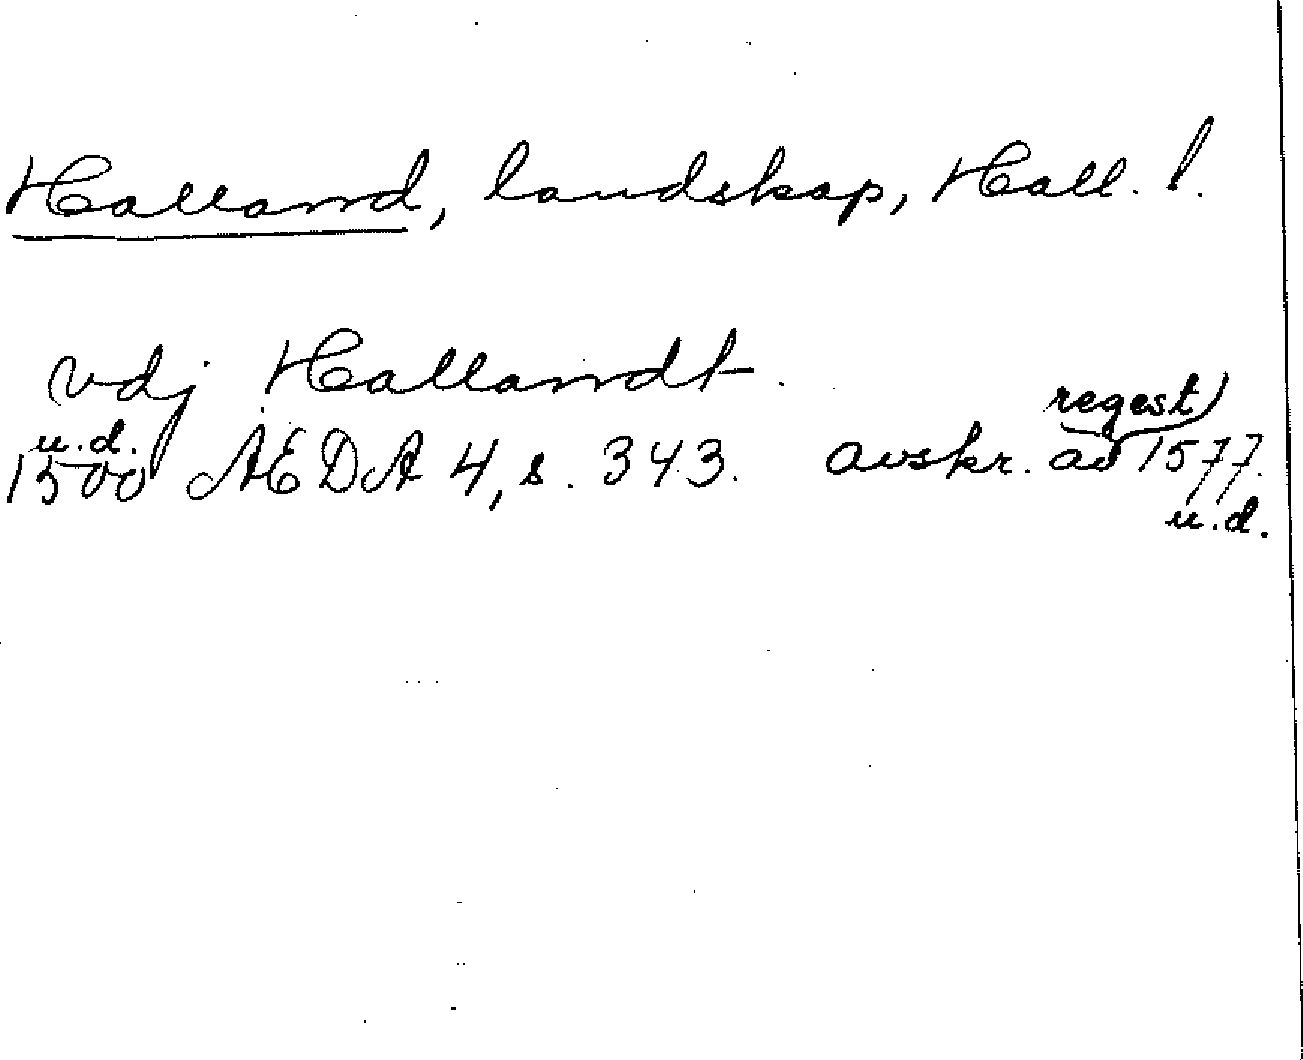 Halland, landskap, Hall. l.
vdj Hallandt.
regest
u.d.
1500 ÆDA 4, s. 343. avskr. av 1577.
u.d.